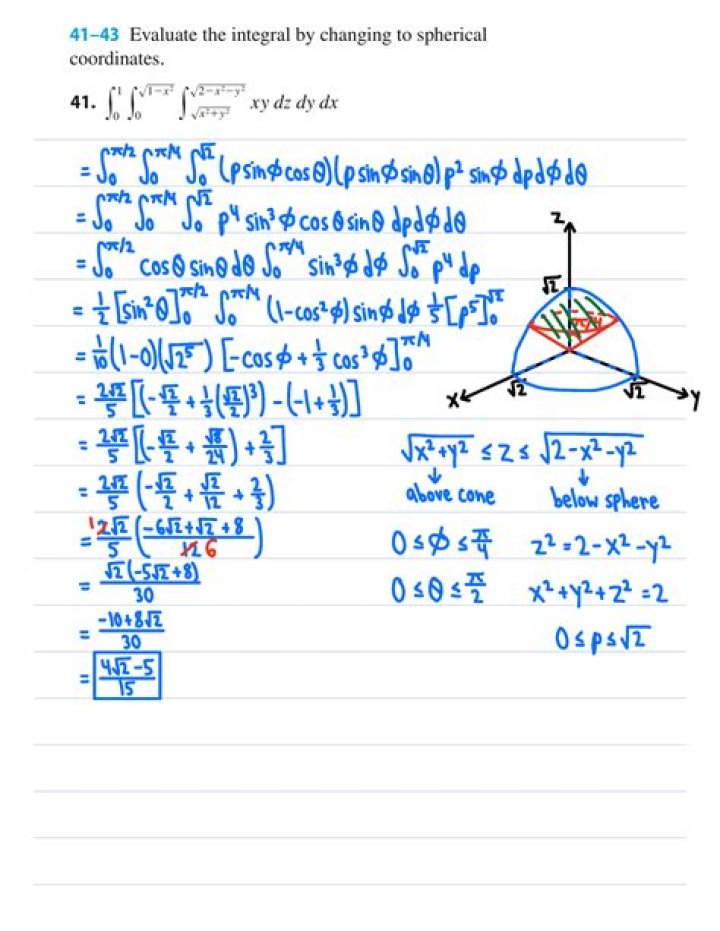 41–43 Evaluate the integral by changing to spherical
coordinates.
41. ∫₀¹ ∫₀^√(1−x²) ∫_√(x²+y²)^√(2−x²−y²) xy dz dy dx
= ∫₀^π/2 ∫₀^π/4 ∫₀^√2 (ρsinφcosθ)(ρsinφsinθ)ρ² sinφ dρdφdθ
= ∫₀^π/2 ∫₀^π/4 ∫₀^√2 ρ⁴ sin³φ cosθ sinθ dρdφdθ
= ∫₀^π/2 cosθ sinθ dθ ∫₀^π/4 sin³φ dφ ∫₀^√2 ρ⁴ dρ
= 1/2 [sin²θ]₀^π/2 ∫₀^π/4 (1-cos²φ) sinφ dφ 1/5 [ρ⁵]₀^√2
= 1/10 (1-0)(√2⁵) [-cosφ + 1/3 cos³φ]₀^π/4
= 2√2/5 [(-√2/2 + 1/3(√2/2)³) - (-1+1/3)]
= 2√2/5 [(-√2/2 + √8/24) + 2/3]
= 2√2/5 (-√2/2 + √2/12 + 2/3)
= ¹2√2/5 (-6√2+√2+8/12 6)
= √2(-5√2+8)/30
= -10+8√2/30
= 4√2-5/15
z
√2
π/4
x
√2
√2
y
√x²+y² ≤ z ≤ √2-x²-y²
↓ ↓
above cone below sphere
0 ≤ φ ≤ π/4 z² = 2-x²-y²
0 ≤ θ ≤ π/2 x²+y²+z² = 2
0 ≤ ρ ≤ √2